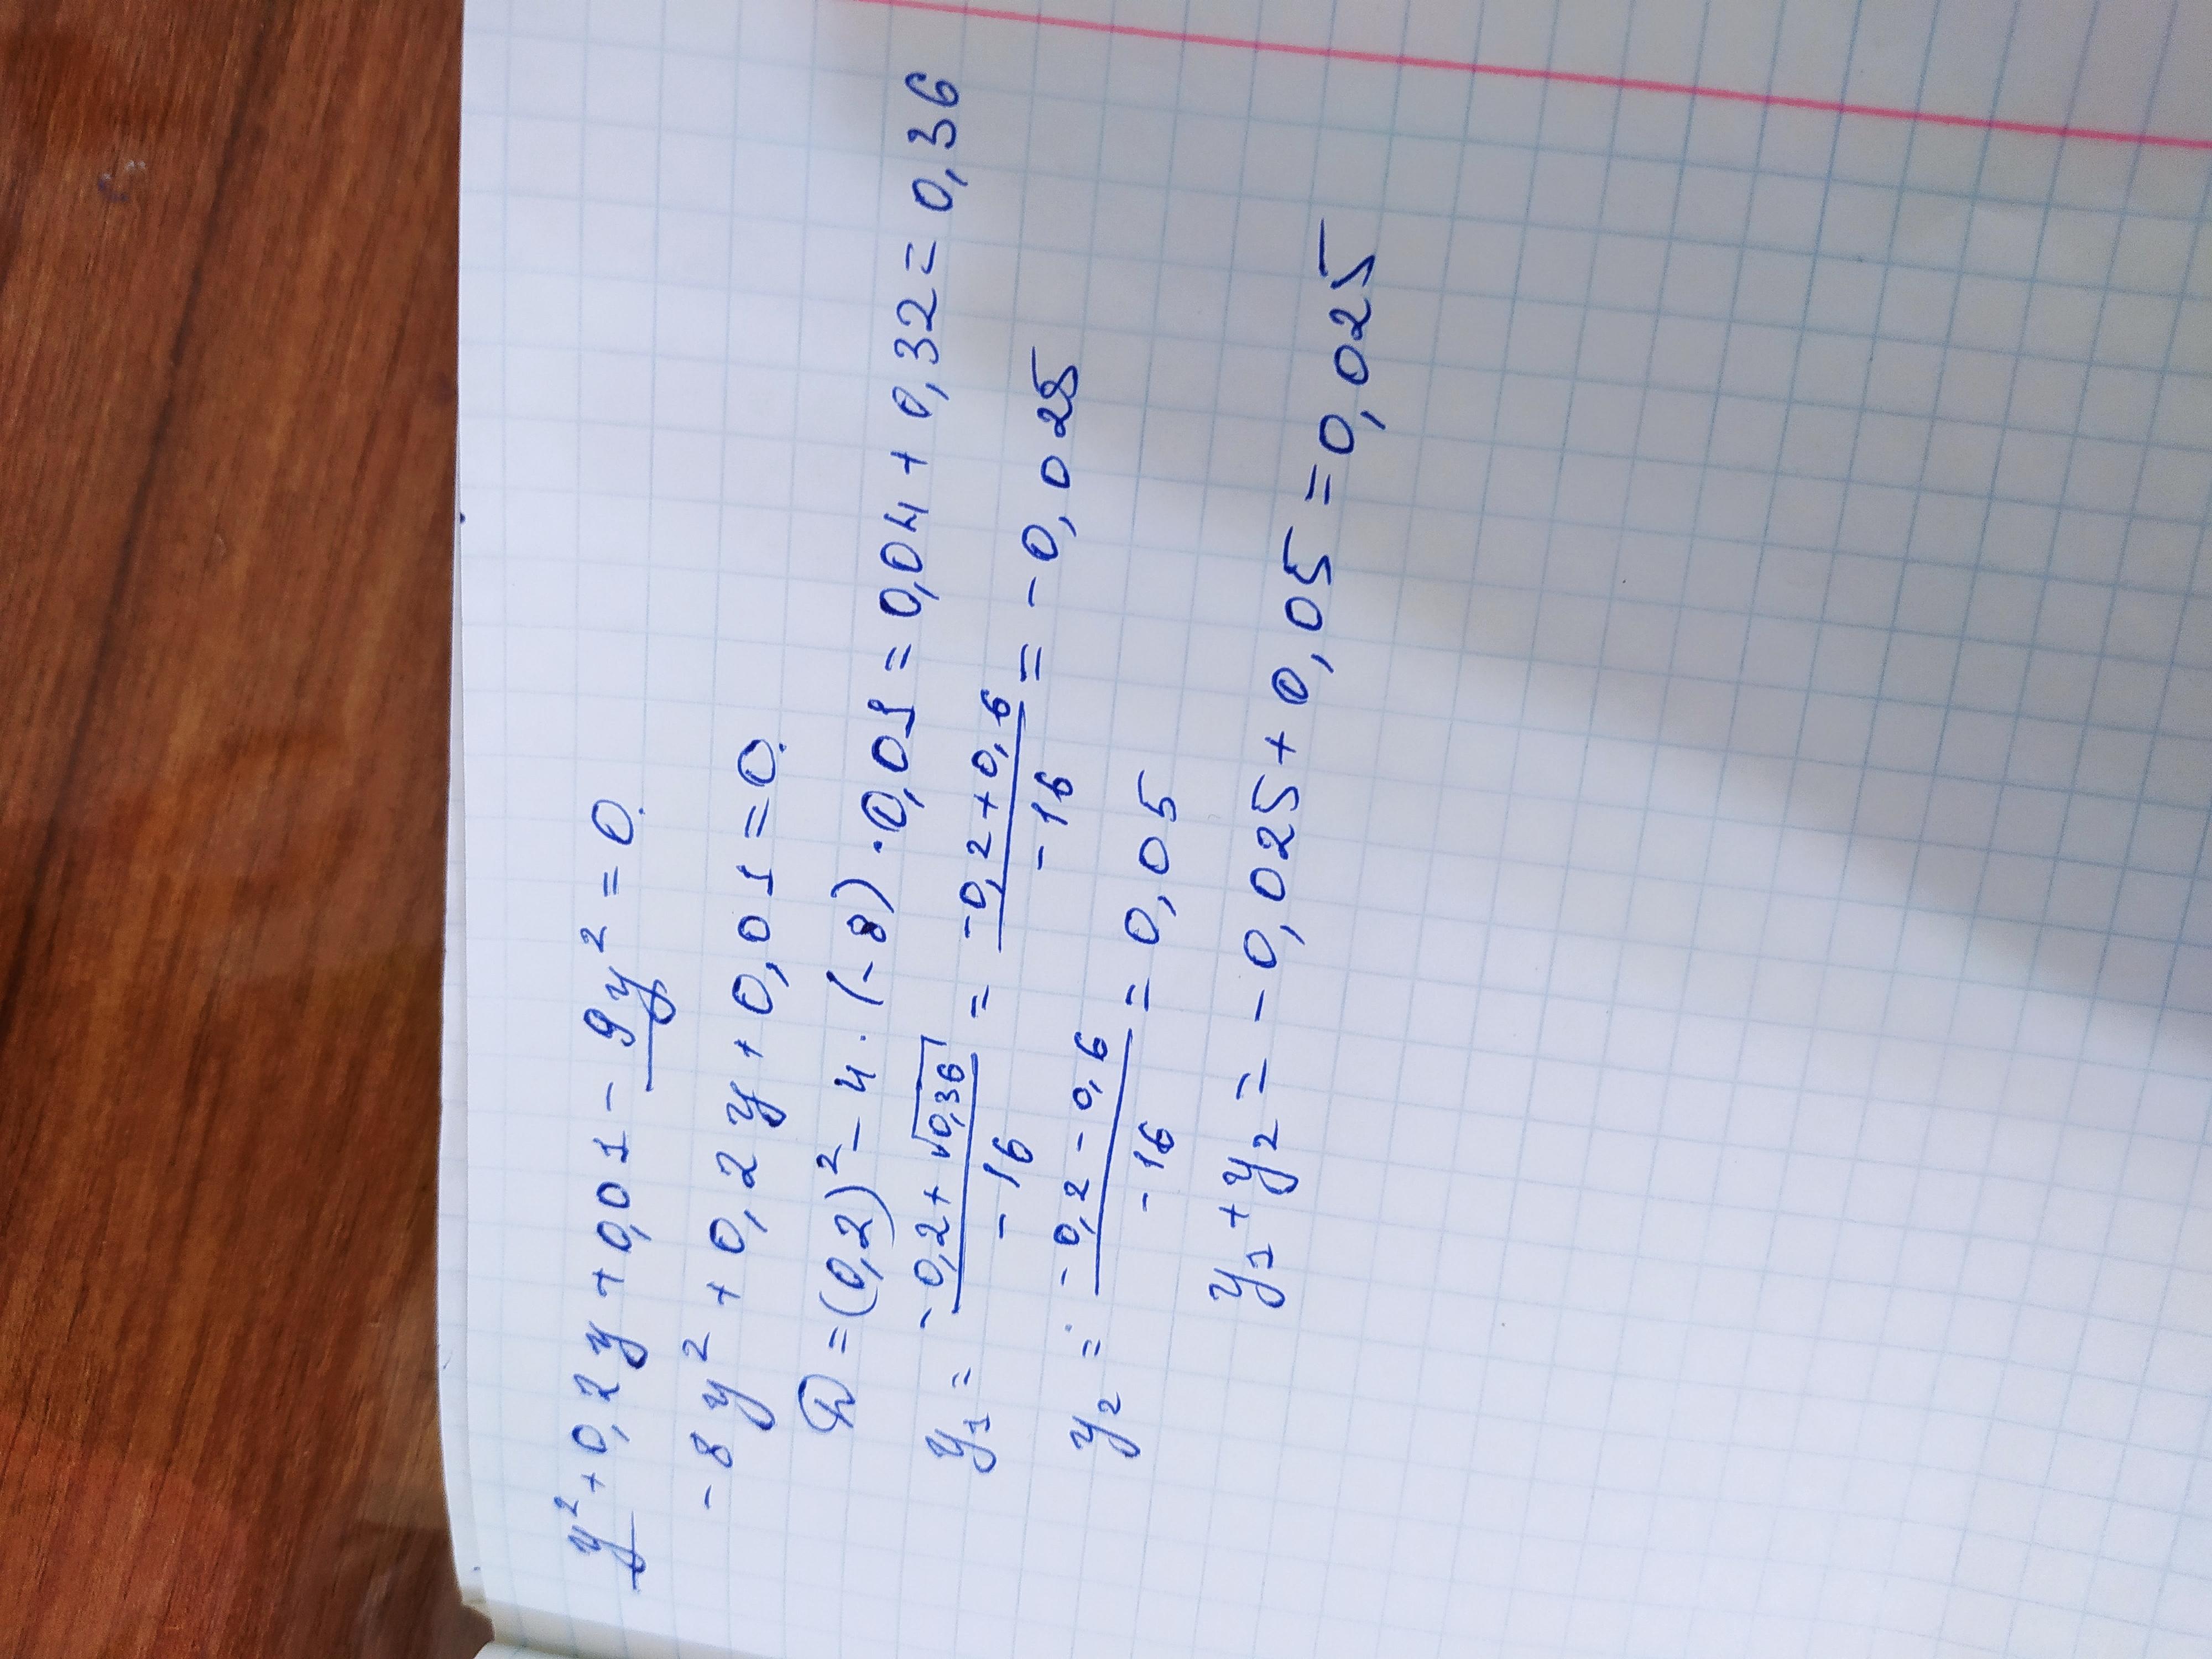 y² + 0,2y + 0,01 - 9y² = 0.
-8y² + 0,2y + 0,01 = 0.
D = (0,2)² - 4 · (-8) · 0,01 = 0,04 + 0,32 = 0,36
y₁ = (-0,2 + √0,36) / -16 = (-0,2 + 0,6) / -16 = -0,025
y₂ = (-0,2 - 0,6) / -16 = 0,05
y₁ + y₂ = -0,025 + 0,05 = 0,025